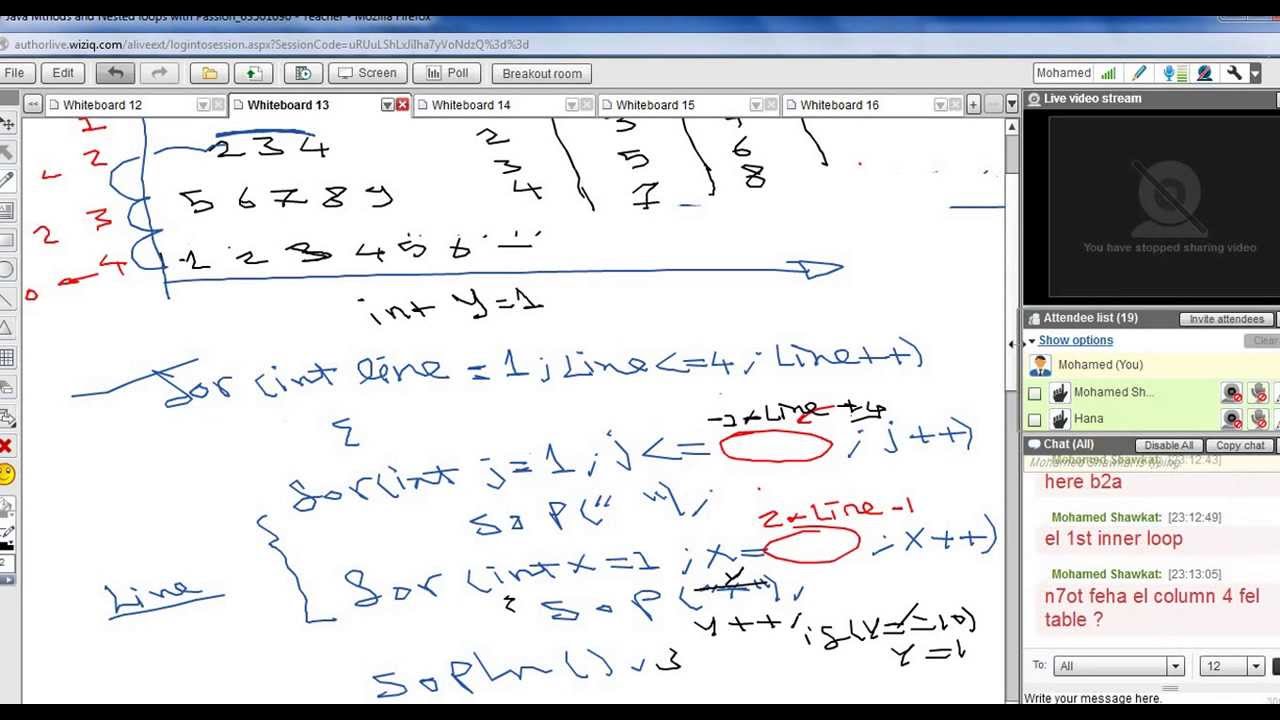 Java Mthods and Nested loops with Passion_03501090 - Teacher - Mozilla Firefox
authorlive.wiziq.com/aliveext/logintosession.aspx?SessionCode=uRUuLShLxJiIha7yVoNdzQ%3d%3d
File Edit Screen Poll Breakout room Mohamed
Whiteboard 12 Whiteboard 13 Whiteboard 14 Whiteboard 15 Whiteboard 16
Live video stream
You have stopped sharing video
1
2 2 3 4 2 3
3 5 6
4 7 8
2 3 5 6 7 8 9
0 4 1 2 3 4 5 6
int y=1
for (int line = 1; Line<=4; Line++)
{
-2*Line+4
for(int j=1; j<= ; j++)
SOP(" ");
2*Line-1
for (int x=1; x= ; x++)
Line { SOP( y );
y++; if(y==10)
y=1
SOPln(); }
Attendee list (19)
Invite attendees
Show options
Clear
Mohamed (You)
Mohamed Sh...
Hana
Chat (All) Disable All Copy chat
Mohamed Shawkat is typing.
Mohamed Shawkat: [23:12:43]
here b2a
Mohamed Shawkat: [23:12:49]
el 1st inner loop
Mohamed Shawkat: [23:13:05]
n7ot feha el column 4 fel
table ?
To: All 12
Write your message here.